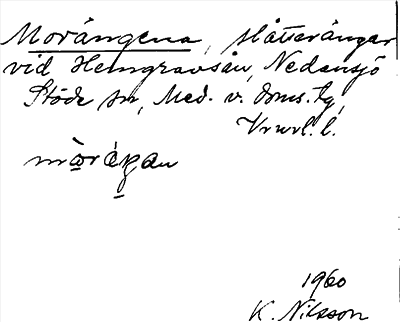 Morängena, slåtterängar
vid Hemgravsån, Nedansjö
Stöde sn, Med. v. doms. tg,
Vrnl. l.
1960
K. Nilsson